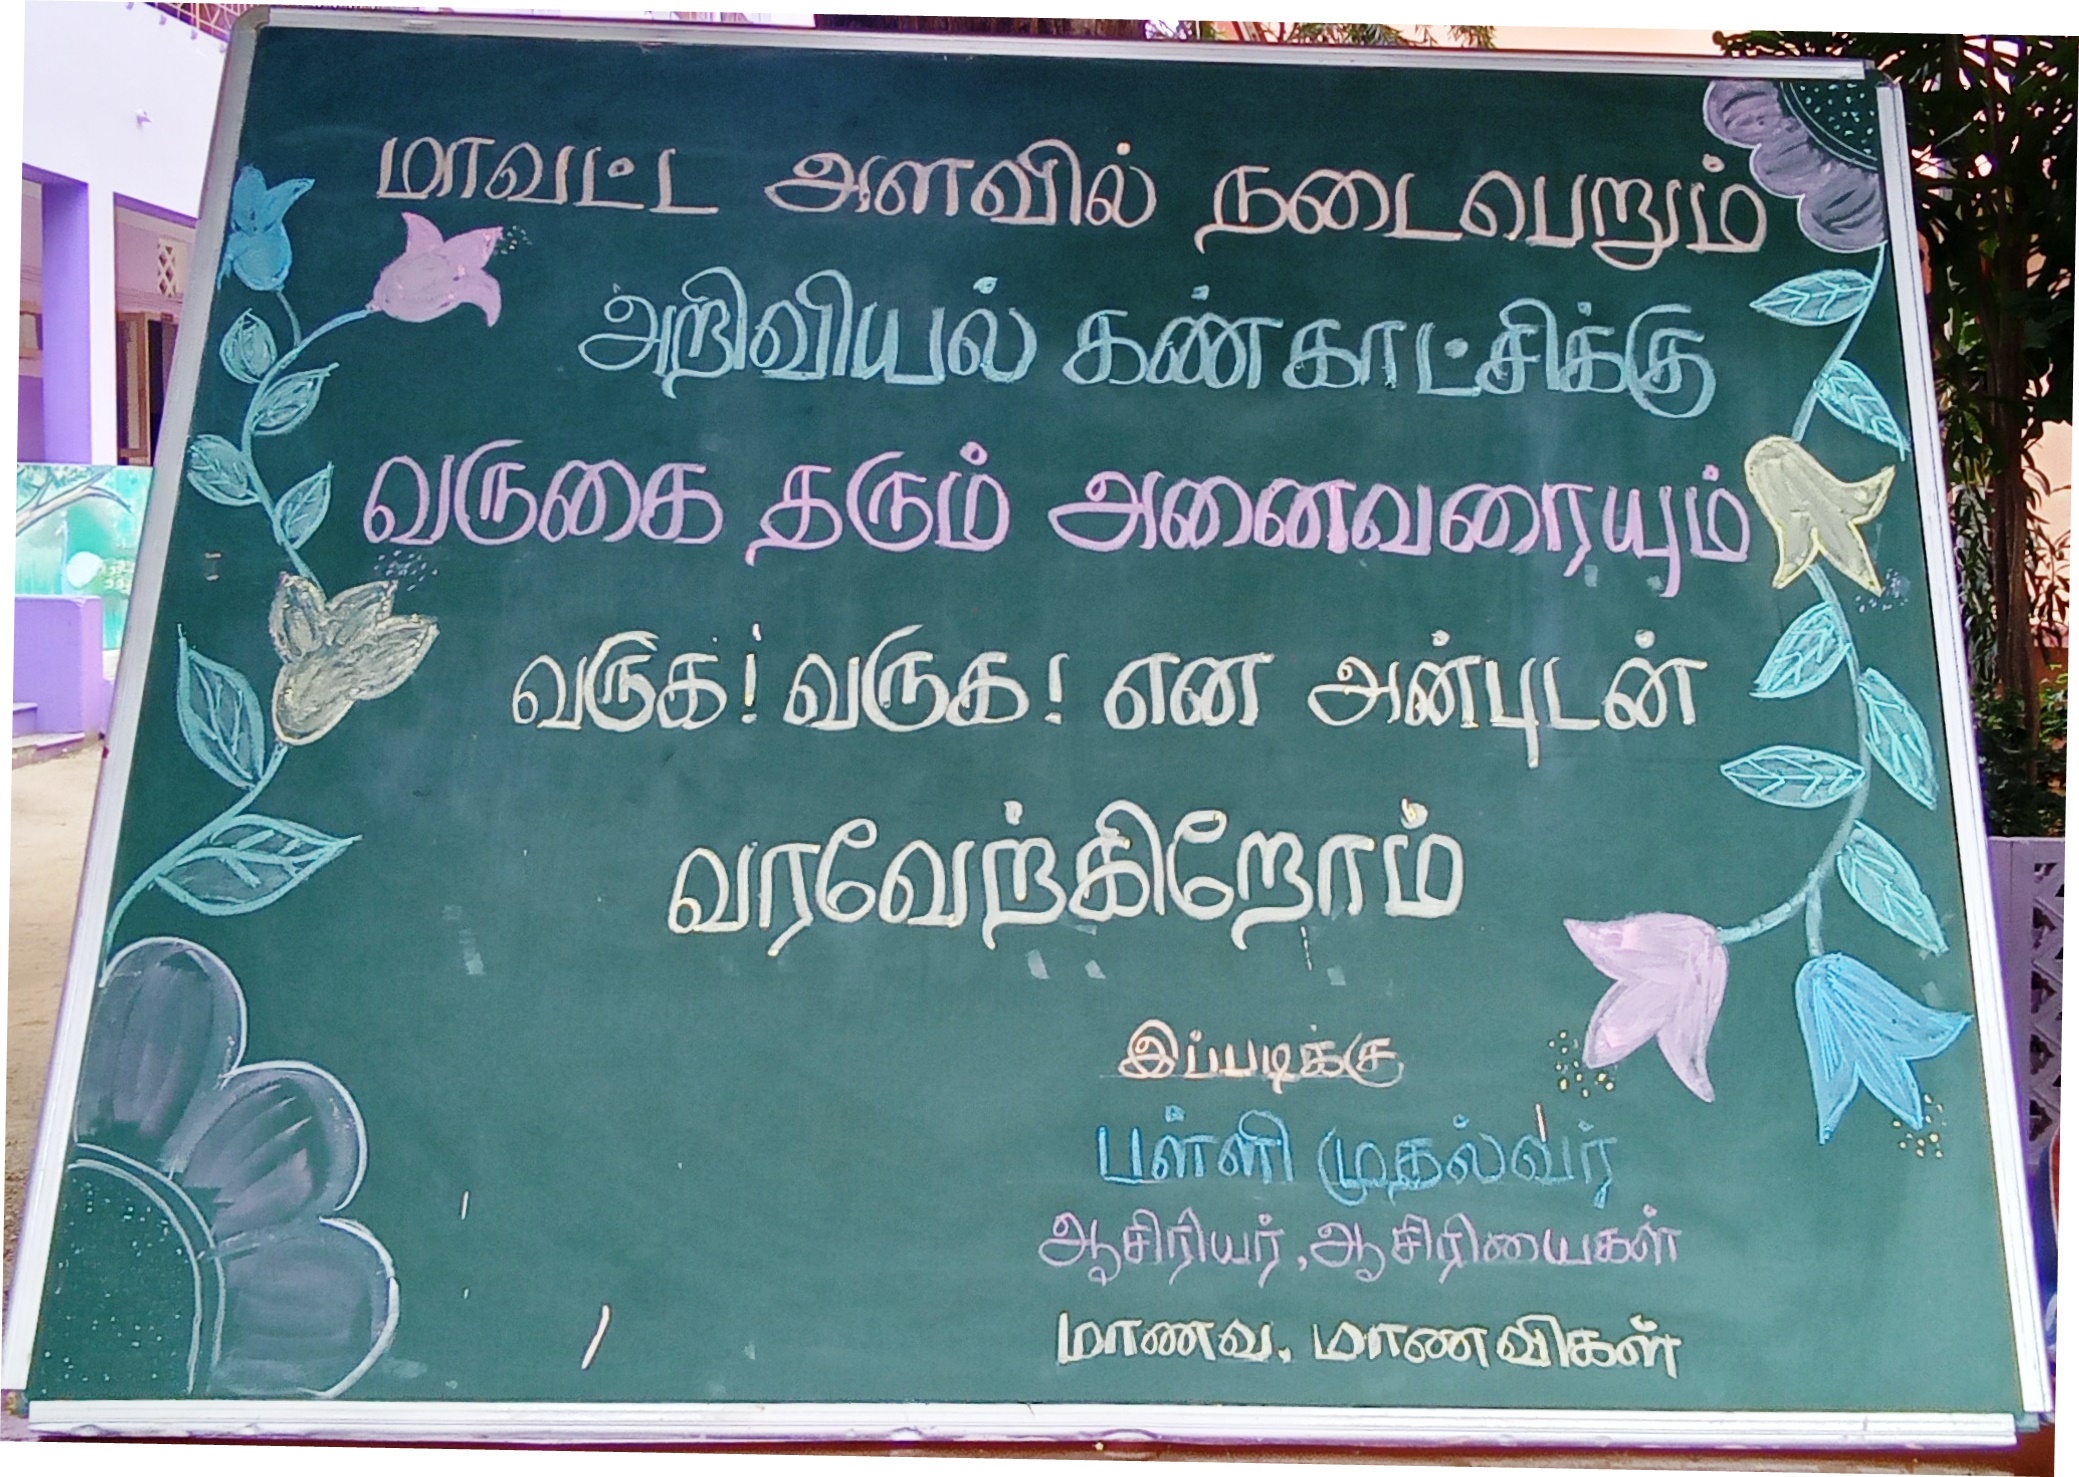 மாவட்ட அளவில் நடைபெறும்
அறிவியல் கண்காட்சிக்கு
வருகை தரும் அனைவரையும்
வருக! வருக! என அன்புடன்
வரவேற்கிறோம்
இப்படிக்கு
பள்ளி முதல்வர்
ஆசிரியர், ஆசிரியைகள்
மாணவ, மாணவிகள்